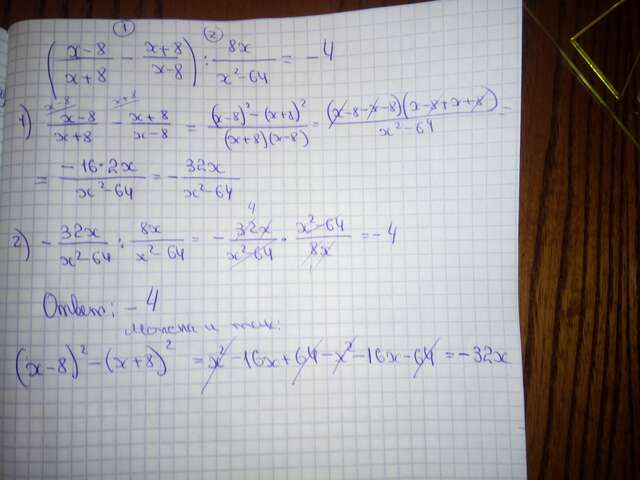 ① ②
( (x-8)/(x+8) - (x+8)/(x-8) ) : 8x/(x²-64) = -4
1) (x-8)/(x+8) - (x+8)/(x-8) = ((x-8)² - (x+8)²)/((x+8)(x-8)) = ((x-8-x-8)(x-8+x+8))/(x²-64) =
= (-16·2x)/(x²-64) = - 32x/(x²-64)
2) - 32x/(x²-64) : 8x/(x²-64) = - 32x/(x²-64) · (x²-64)/8x = -4
Ответ: -4
Можно и так:
(x-8)² - (x+8)² = x² - 16x + 64 - x² - 16x - 64 = -32x